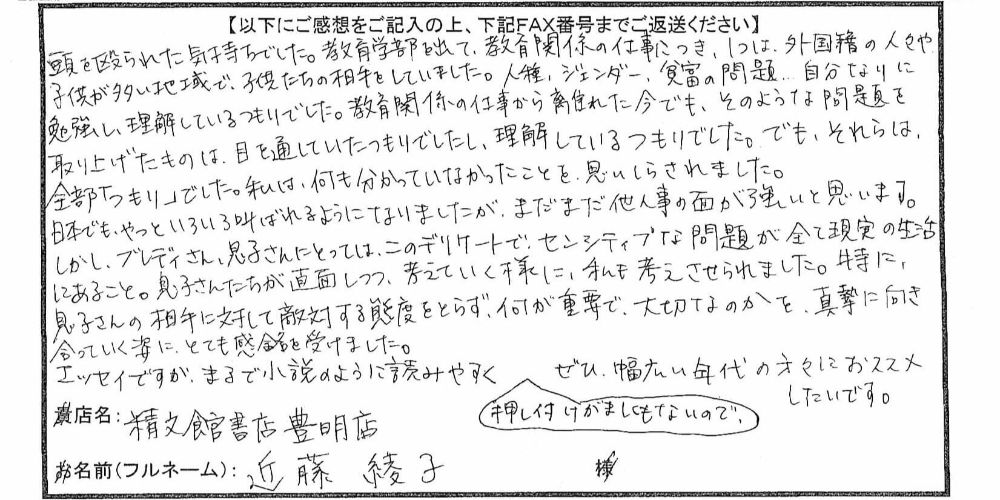 【以下にご感想をご記入の上、下記FAX番号までご返送ください】
頭を殴られた気持ちでした。教育学部を出て、教育関係の仕事につき、1つは、外国籍の人々や
子供が多い地域で、子供たちの相手をしていました。人種、ジェンダー、貧富の問題…自分なりに
勉強し、理解しているつもりでした。教育関係の仕事から離れた今でも、そのような問題を
取り上げたものは、目を通していたつもりでしたし、理解しているつもりでした。でも、それらは、
全部「つもり」でした。私は、何も分かっていなかったことを、思いしらされました。
日本でも、やっといろいろ叫ばれるようになりましたが、まだまだ他人事の面が強いと思います。
しかし、ブレディさん、息子さんにとっては、このデリケートで、センシティブな問題が全て現実の生活
にあること。息子さんたちが直面しつつ、考えていく様に、私も考えさせられました。特に、
息子さんの相手に対して敵対する態度をとらず、何が重要で、大切なのかを、真摯に向き
合っていく姿に、とても感銘を受けました。
エッセイですが、まるで小説のように読みやすく 押し付けがましくもないので、 ぜひ、幅広い年代の方々におススメ
したいです。
貴店名: 精文館書店 豊明店
お名前(フルネーム): 近藤 綾子 様